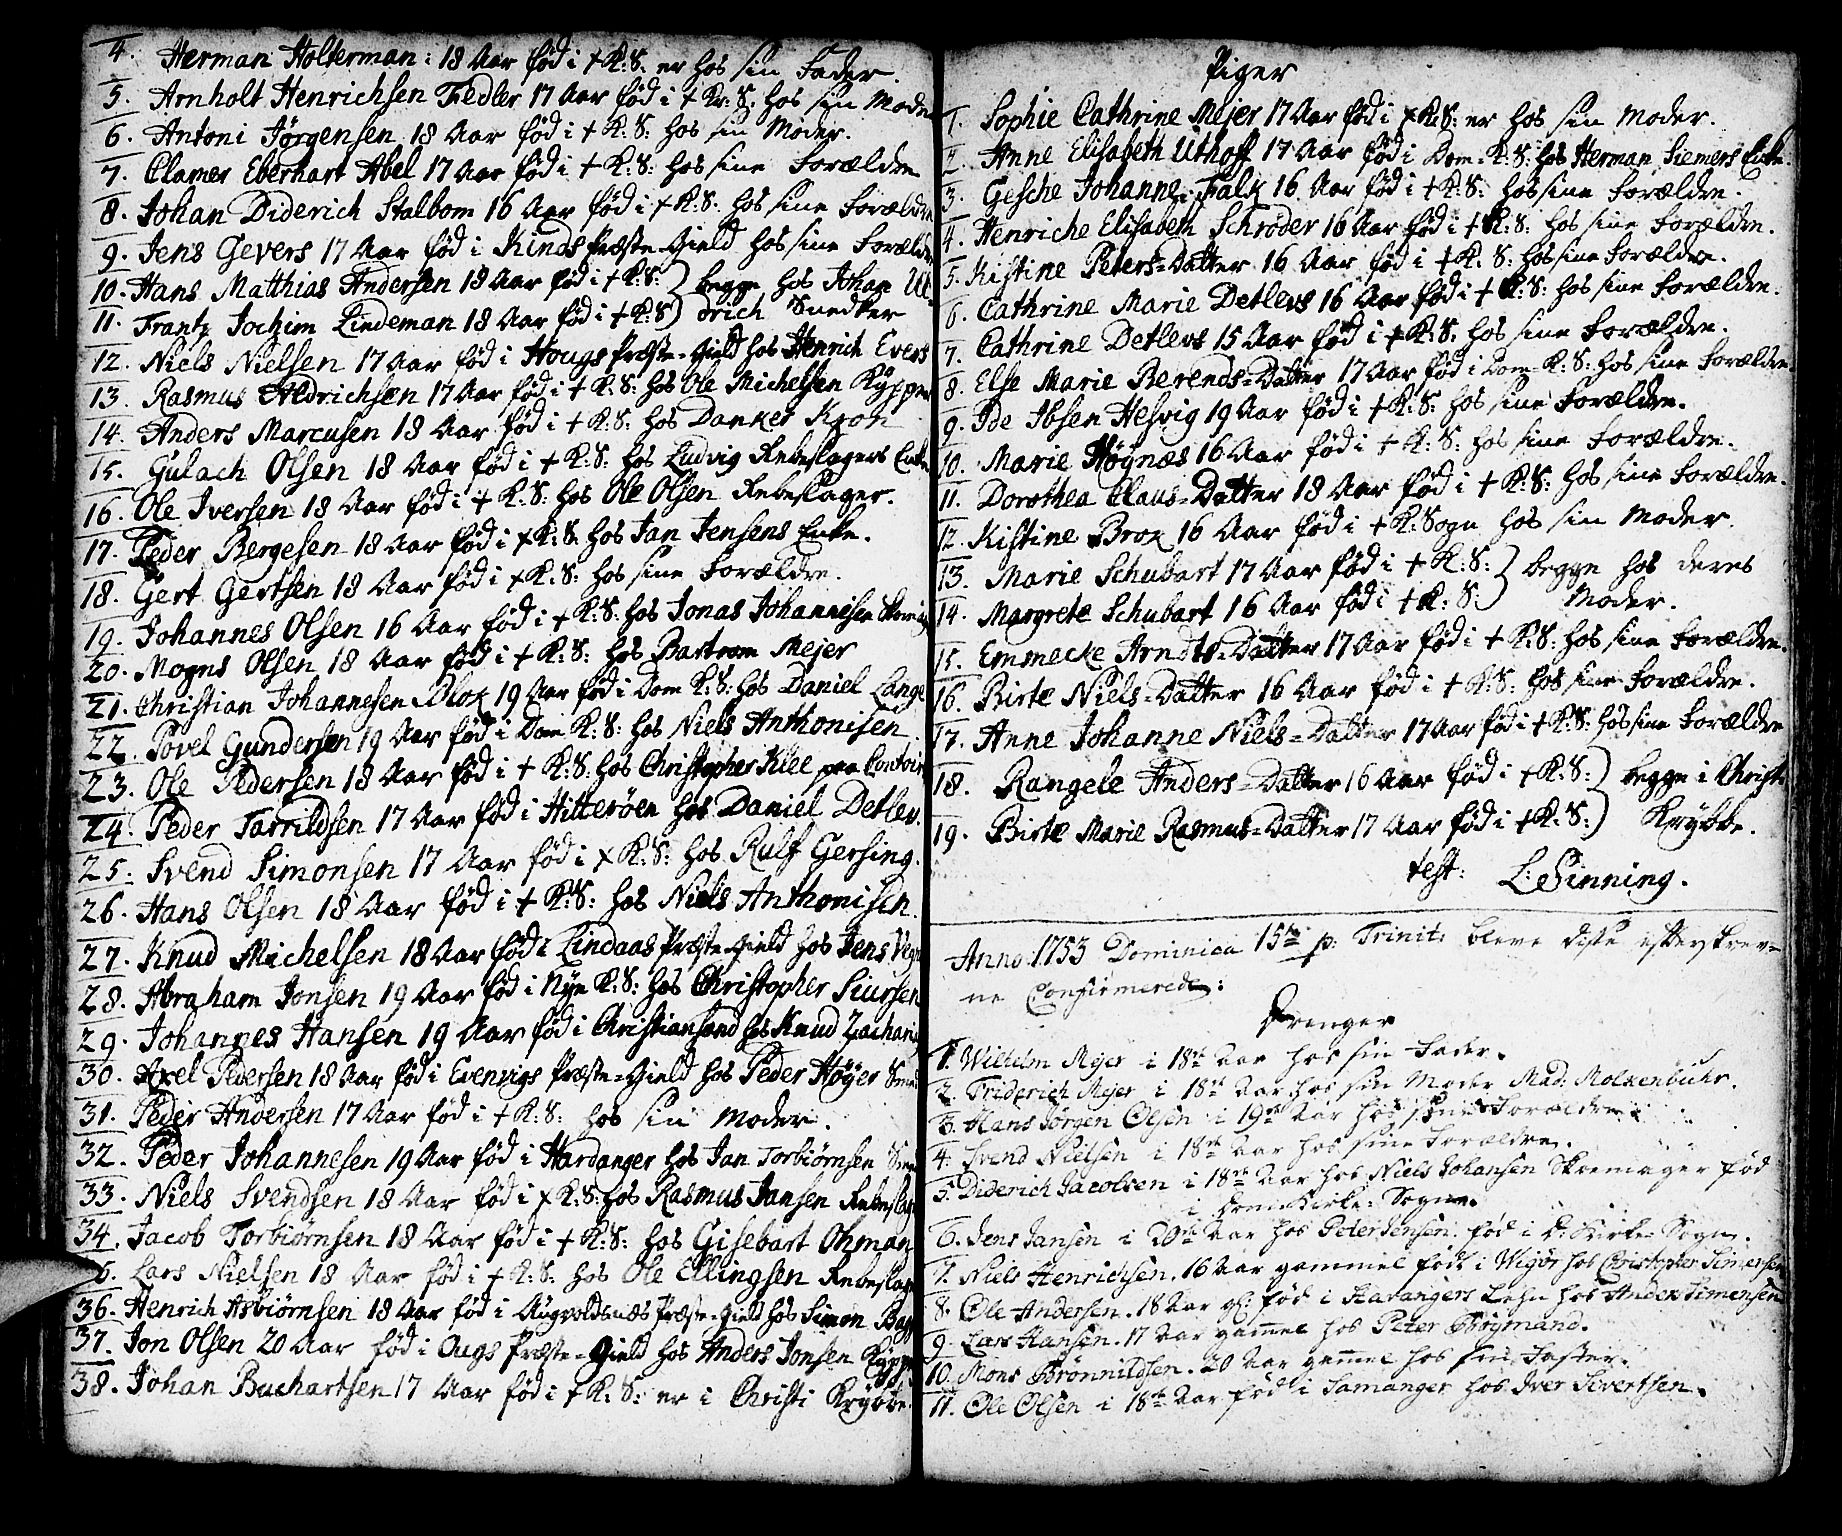 4. Herman Holterman: 18 Aar fød i † K: S. er hos sin Fader.
5. Arnholt Henrichsen Fedler 17 Aar fød i † Kr: S: hos sin Moder
6. Antoni Jørgensen 18 Aar fød i † K: S: hos sin Moder.
7. Clamer Eberhart Abel 17 Aar fød i † K: S: hos sine Forældre
8. Johan Diderich Stalbom 16 Aar fød i † K: S: hos sine Forældre
9. Jens Gevers 17 Aar fød i Kinds Præste-Gield hos sine Forældre
10. Hans Matthias Andersen 18 Aar fød i † K: S: } begge hos Johan Ul-
11. Frantz Jochim Lindeman 18 Aar fød i † K: S } drich Snedker
12. Niels Nielsen 17 Aar fød i Hougs Præste-Gield hos Henrich Evers
13. Rasmus Aldrichsen 17 Aar fød i † K: S: hos Ole Michelsen Kypper
14. Anders Marcusen 18 Aar fød i † K: S: hos Danker Kron
15. Gulach Olsen 18 Aar fød i † K: S: hos Ludvig Rebeslagers Enke
16. Ole Iversen 18 Aar fød i † K: S: hos Ole Olsen Rebeslager.
17. Peder Bergesen 18 Aar fød i † K: S. hos Jan Jensens Enke.
18. Gert Gertsen 18 Aar fød i † K: S: hos sine Forældre.
19. Johannes Olsen 16 Aar fød i † K: S: hos Jonas Johannesen
20. Mogns Olsen 18 Aar fød i † K: S: hos Bartram Mejer
21. Christian Johannesen Blok 19 Aar fød i Dom K: S: hos Daniel Lange
22. Povel Gundersen 19 Aar fød i Dom K: S: hos Niels Anthonisen
23. Ole Pedersen 18 Aar fød i † K: S: hos Christopher Klee paa Contoir
24. Peder Tarrildsen 17 Aar fød i Hitterøen hos Daniel Detlev.
25. Svend Simonsen 17 Aar fød i † K: S: hos Rulf Gersing.
26. Hans Olsen 18 Aar fød i † K: S: hos Niels Anthonisen.
27. Knud Michelsen 18 Aar fød i Lindaas Præste-Gield hos Jens
28. Abraham Jonsen 19 Aar fød i Nye K: S: hos Christopher Siursen
29. Johannes Hansen 19 Aar fød i Christiansand hos Knud Zacharias
30. Axel Pedersen 18 Aar fød i Evenvigs Præste-Gield hos Peder Høyer
31. Peder Andersen 17 Aar fød i † K: S: hos sin Moder.
32. Peder Johannesen 19 Aar fød i Hardanger hos Jan Torbiørnsen
33. Niels Svendsen 18 Aar fød i † K: S: hos Rasmus Jansen Rebeslag
34. Jacob Torbiørnsen 18 Aar fød i † K: S: hos Gisebart Ohman
5. Lars Nielsen 18 Aar fød i † K: S: hos Ole Ellingsen Rebeslage
36. Henrich Asbiørnsen 18 Aar fød i Augvoldsnæs Præste-Gield hos Simon
37. Jon Olsen 20 Aar fød i Augs Præste-Gield hos Anders Jonsen Kyppe
38. Johan Buchartsen 17 Aar fød i † K: S: er i Christi Krybbe.
Piger
1. Sophie Cathrine Mejer 17 Aar fød i † K: S: er hos sin Moder.
2. Anne Elisabeth Uthoff 17 Aar fød i Dom-K: S: hos Herman Siemers Enke
3. Gesche Johanne Falk 16 Aar fød i † K: S: hos sine Forældre.
4. Henriche Elisabeth Schrøder 16 Aar fød i † K: S: hos sine Forældre.
5. Kistine Peters-Datter 16 Aar fød i † K: S: hos sine Forældre.
6. Cathrine Marie Detlevs 16 Aar fød i † K: S: hos sine Forældre.
7. Cathrine Detlevs 15 Aar fød i † K: S: hos sine Forældre.
8. Else Marie Berends-Datter 17 Aar fød i Dom-K: S: hos sine Forældre
9. Ide Ibsen Hesvig 19 Aar fød i † K: S: hos sine Forældre.
10. Marie Høgnæs 16 Aar fød i † K: S: hos sine Forældre.
11. Dorothea Claus-Datter 18 Aar fød i † K: S: hos sine Forældre.
12. Kistine Brok 16 Aar fød i † K: Sogn hos sin Moder.
13. Marie Schubart 17 Aar fød i † K: S: } begge hos deres
14. Margrete Schubart 16 Aar fød i † K: S: } Moder.
15. Emmecke Arndts-Datter 17 Aar fød i † K: S: hos sine Forældre.
16. Birte Niels-Datter 16 Aar fød i † K: S: hos sine Forældre.
17. Anne Johanne Niels-Datter 17 Aar fød i † K: S: hos sine Forældre
18. Rangele Anders-Datter 16 Aar fød i † K: S: } begge i Christi
19. Birte Marie Rasmus-Datter 17 Aar fød i † K: S: } Krybbe.
test: L: Sinning.
Anno 1753 Dominica 15de p: Trinit: bleve disse efterskrev-
ne Confirmerede:
Drenger
1. Wilhelm Mejer i 18de Aar hos sin Fader.
2. Friderich Mejer i 18de Aar hos sin Moder Mad: Molkenbuhr.
3. Hans Jørgen Olsen i 19de Aar hos sine Forældre
4. Svend Nielsen i 18de Aar hos sine Forældre.
5. Diderich Jacobsen i 18de Aar hos Niels Johansen Skoemager fød
i Domkirke-Sogne.
6. Jens Jansen i 20de Aar hos Peter Jensen fød i D: Kirke-Sogn.
7. Niels Henrichsen. 16 Aar gammel født i Wigør hos Christopher Simensen
8. Ole Andersen. 18 Aar gl: fød i Stavangers Lehn hos Anders Simensen
9. Lars Hansen. 17 Aar gammel hos Peter Brøgmand.
10. Mons Brønnildsen. 20 Aar gammel hos sin Faster.
11. Ole Olsen i 18de Aar fød i Samanger hos Iver Sivertsen.